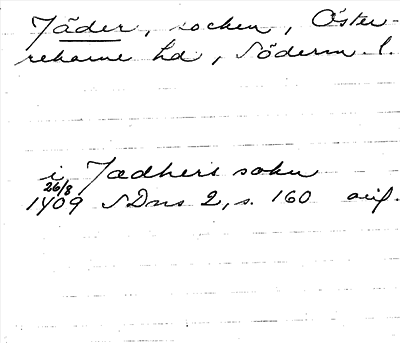 Jäder, socken, Öster-
rekarne hd, Söderm. l.
i Jædhers sokn
26/8
1409 SDns 2, s. 160 avsf.